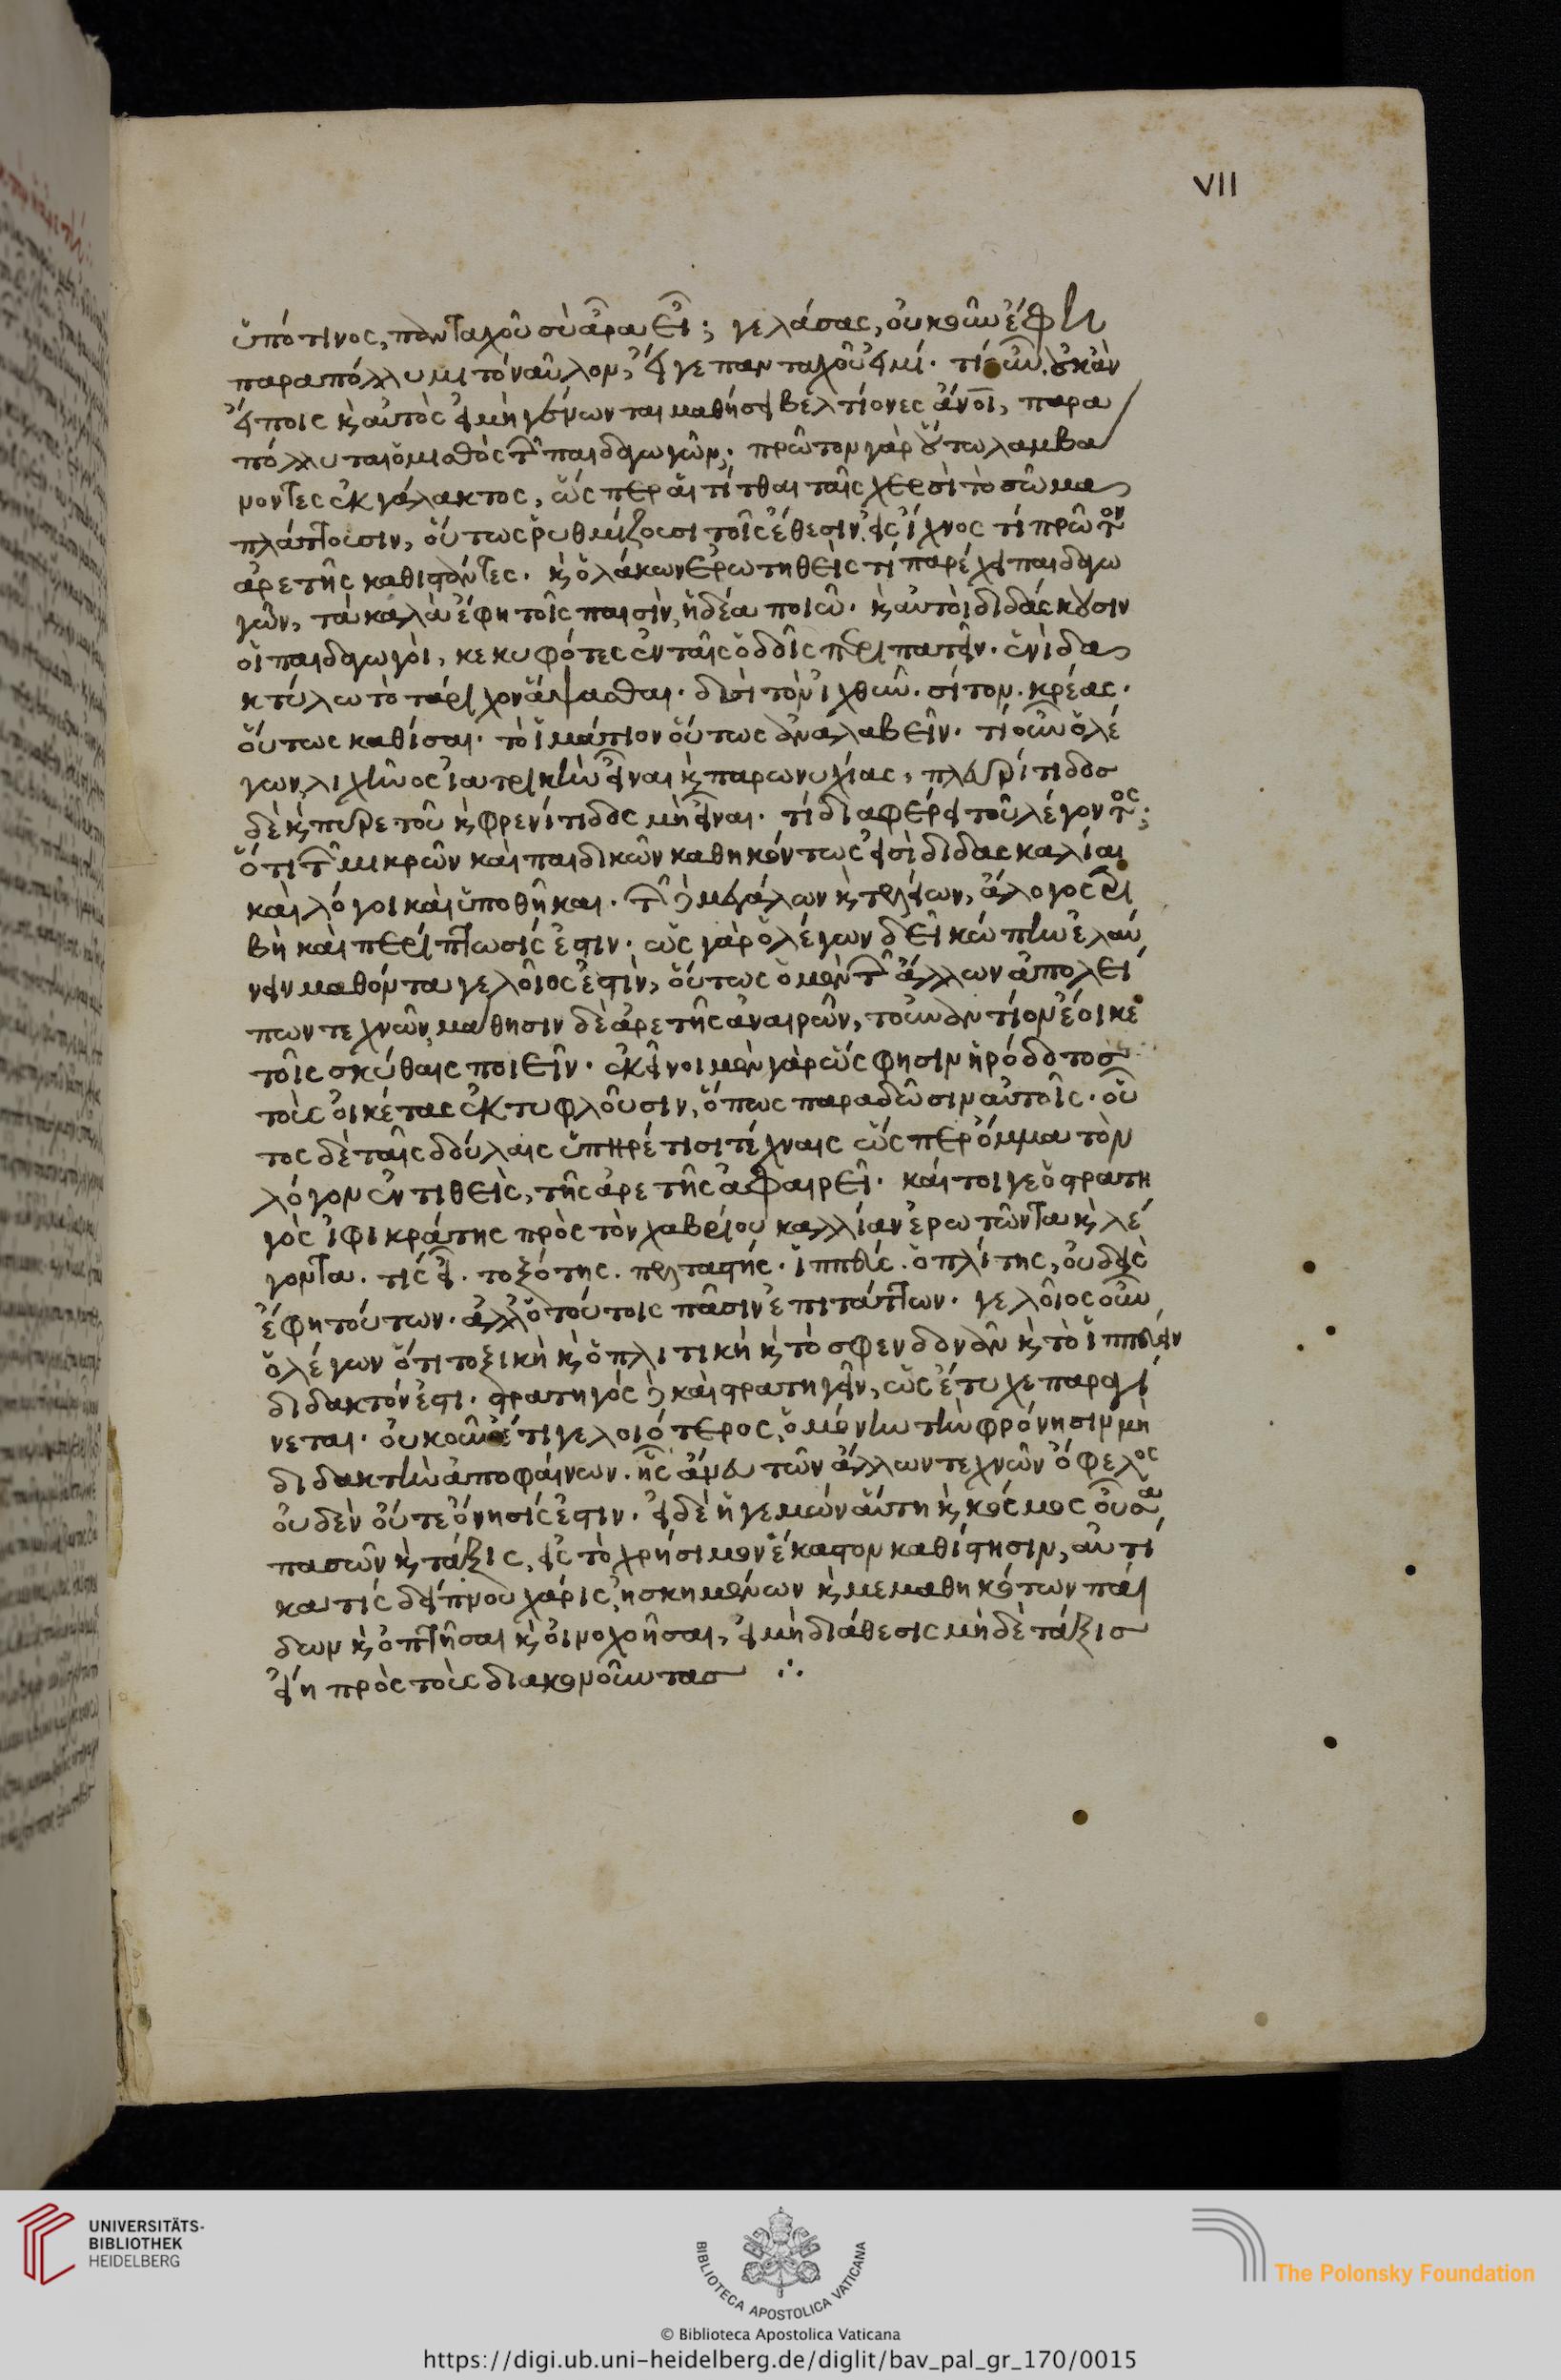 VII
ὑπό τινος, πανταχοῦ σὺ ἆρα εἶ; γελάσας, οὐκοῦν ἔφη
παραπόλλυμι τὸ ναῦλον, εἴγε πανταχοῦ εἰμί. τί οὖν οὐκ ἂν
εἴποις κ αὐτὸς εἰ μὴ γίνωνται μαθήσει βελτίονες ἄνοι, παρα
πόλλυται ὁ μισθὸς τ παιδαγωγῶν; πρῶτον γὰρ οὗτω λαμβα
νοντες ἐκ γάλακτος, ὥς περ αἱ τίτθαι ταῖς χερσὶ τὸ σῶμα
πλάττουσιν, οὕτως ῥυθμίζουσι τοῖς ἔθεσιν, εἰς ἴχνος τι πρῶτον
ἀρετῆς καθιστάντες. κ ὁ λάκων ἐρωτηθεὶς τί παρέχει παιδαγω
γῶν, τὰ καλὰ ἔφη τοῖς παισὶν, ἡδέα ποιῶ. κ αὐτοὶ διδάσκουσιν
οἱ παιδαγωγοὶ, κεκυφότες ἐν ταῖς ὁδοῖς περιπατεῖν. ἑνὶ δα
κτύλω τὸ τάριχον ἅψασθαι. δυσὶ τὸν ἰχθῦν. σίτον. κρέας.
οὕτως καθίσαι. τὸ ἱμάτιον οὕτως ἀναλαβεῖν. τί οὖν ὁ λέ
γων λιχῆνος ἰατρικὴν εἶναι κ παρωνυχίας, πλευρίτιδος
δὲ κ πυρετοῦ κ φρενίτιδος μὴ εἶναι. τί διαφέρει τοῦ λέγοντος;
ὅτι τ μικρῶν καὶ παιδικῶν καθηκόντως εἰσὶ διδασκαλίαι
καὶ λόγοι καὶ ὑποθῆκαι. τ δὲ μεγάλων κ τελείων, ἄλογος τρι
βὴ καὶ περίπτωσίς ἐστιν. ὡς γὰρ ὁ λέγων δεῖ κώπην ἐλαύ
νειν μαθόντα γελοῖος ἐστὶν, οὕτως ὁ μὲν τ ἄλλων ἀπολεί
πων τεχνῶν μάθησιν δὲ ἀρετῆς ἀναιρῶν, τοὐναντίον ἔοικε
τοῖς σκύθαις ποιεῖν. ἐκεῖνοι μὲν γὰρ ὥς φησιν ἡρόδοτος
τοὺς οἰκέτας ἐκτυφλοῦσιν, ὅπως παραδῶσιν αὐτοῖς. οὗ
τος δὲ ταῖς δούλαις ὑπηρέτισι τέχναις ὥς περ ὄμμα τὸν
λόγον ἐντιθεὶς, τῆς ἀρετῆς ἀφαιρεῖ. καίτοι γε ὁ στρατη
γὸς ἰφικράτης πρὸς τὸν χαβρίου καλλίαν ἐρωτῶντα κ λέ
γοντα. τίς εἶ. τοξότης. πελταστής. ἱππεύς. ὁπλίτης, οὐδεὶς
ἔφη τούτων. ἀλλ ὁ τούτοις πᾶσιν ἐπιτάττων. γελοῖος οὖν
ὁ λέγων ὅτι τοξικὴ κ ὁπλιτικὴ κ τὸ σφενδονᾶν κ τὸ ἱππεύειν
διδακτόν ἐστι. στρατηγὸς δὲ καὶ στρατηγεῖν, ὡς ἔτυχε παραγί
νεται. οὐκοῦν ἔτι γελοιότερος, ὁ μόνην τὴν φρόνησιν μὴ
διδακτὴν ἀποφαίνων. ἧς ἄνευ τῶν ἄλλων τεχνῶν ὄφελος
οὐδὲν οὔτε ὄνησίς ἐστιν. εἰ δὲ ἡγεμὼν αὕτη κ κόσμος οὖσα
πασῶν κ τάξις, εἰς τὸ χρήσιμον ἕκαστον καθίστησιν, αὐτί
κα τίς δείπνου χάρις, ἠσκημένων κ μεμαθηκότων παί
δων κ ὀπτῆσαι κ οἰνοχοῆσαι, εἰ μὴ διάθεσις μὴ δὲ τάξις
εἴη πρὸς τοὺς διακονοῦντας ∴
UNIVERSITÄTS-
BIBLIOTHEK
HEIDELBERG
BIBLIOTECA APOSTOLICA VATICANA
The Polonsky Foundation
© Biblioteca Apostolica Vaticana
https://digi.ub.uni-heidelberg.de/diglit/bav_pal_gr_170/0015